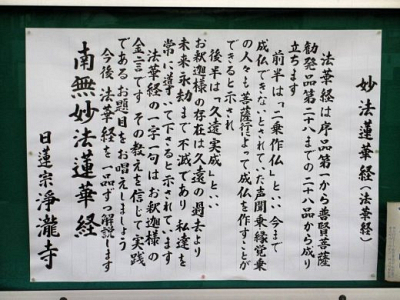 妙法蓮華経(法華経)
法華経は序品第一から普賢菩薩
勧発品第二十八までの二十八品から成り
立ちます
前半は「二乗作仏」と…今まで
成仏できないとされていた声聞乗縁覚乗
の人々も菩薩行によって成仏を作すことが
できると示され
後半は「久遠実成」と…
お釈迦様の存在は久遠の過去より
未来永劫まで不滅であり私達を
常に導いて下さると示されています
法華経の一字一句はお釈迦様の
金言です その教えを信じて実践
であるお題目をお唱えしましょう
今後 法華経を一品ずつ解説します
南無妙法蓮華経
日蓮宗 浄瀧寺